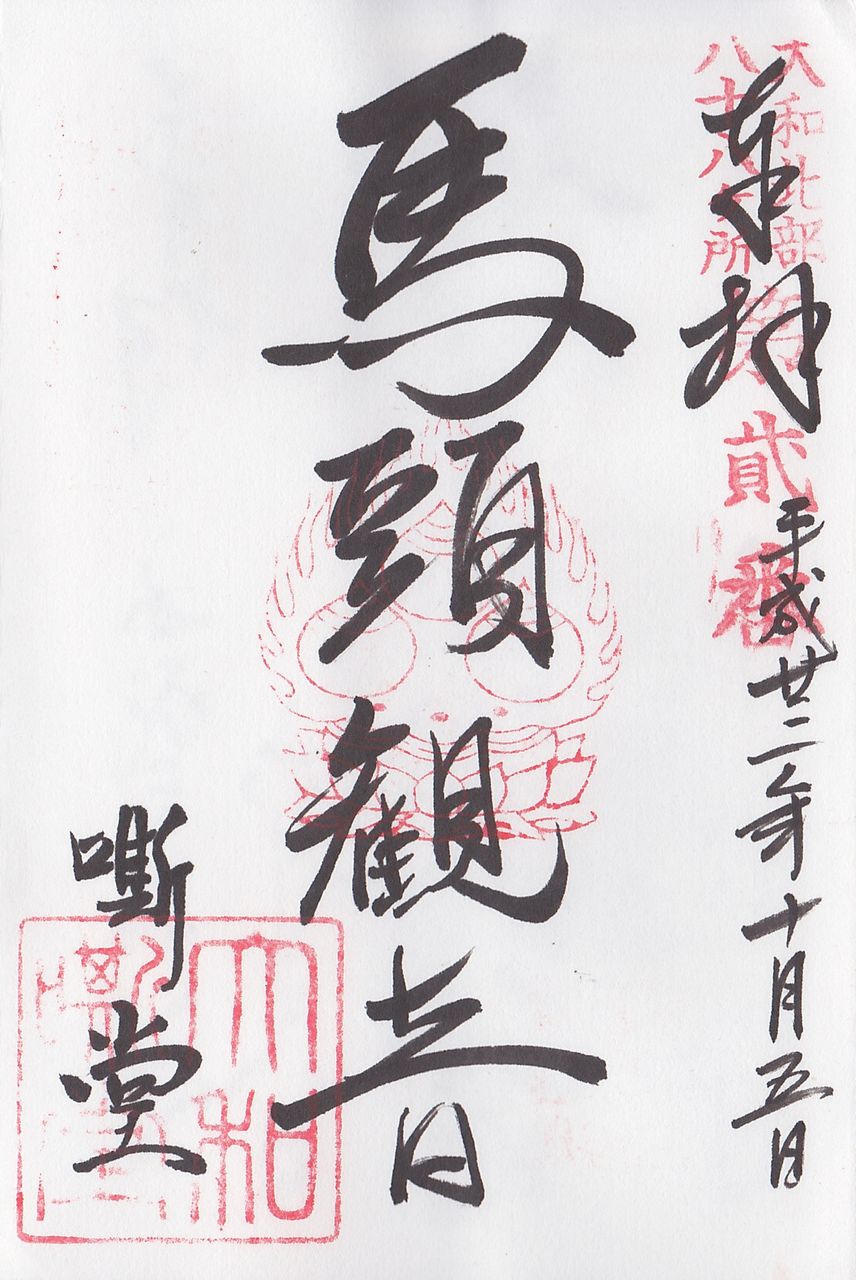 奉拝
大和北部
八十八ヶ所
第拾貳番
平成廿二年十月五日
馬頭観音
嘶堂
大和
嘶堂